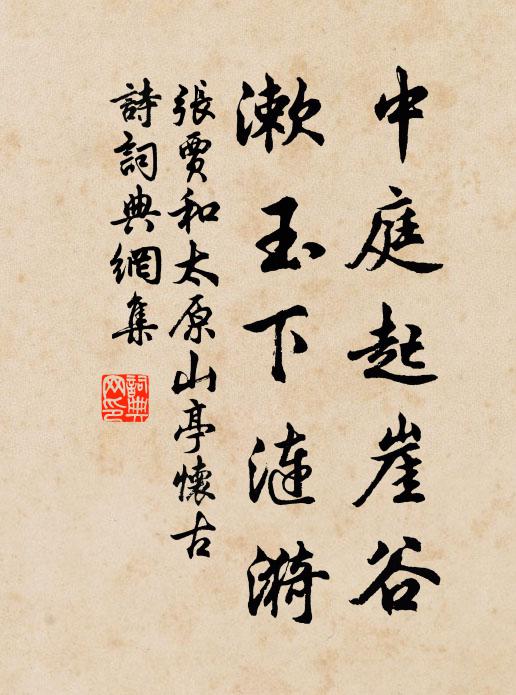 中庭起崖谷
漱玉下漣漪
張賈和太原山亭懷古
詩詞典網集
詞典网印